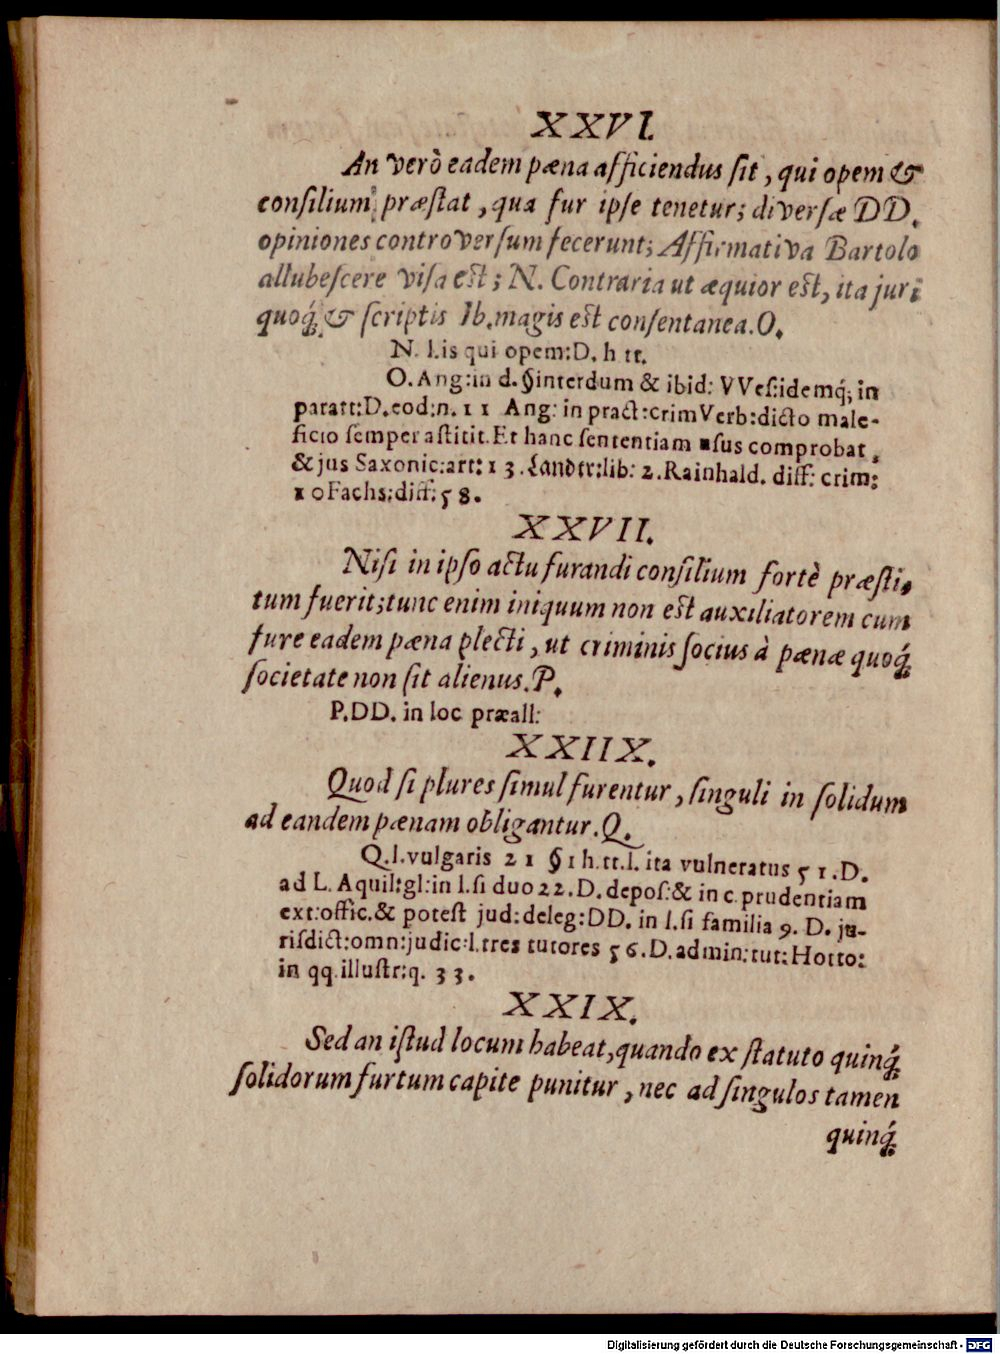 XXVI.
An verò eadem pæna afficiendus ſit, qui opem &
conſilium præſtat, qua fur ipſe tenetur; diverſæ DD.
opiniones controverſum fecerunt; Affirmativa Bartolo
allubeſcere viſa est; N. Contraria ut æquior est, ita juri
quoq́; & ſcriptis Ib. magis est conſentanea. O.
N. l. is qui opem: D. h tt.
O. Ang: in d. §interdum & ibid: VVeſ: idemq́; in
paratt: D. eod: n. 11 Ang: in pract: crim Verb: dicto male-
ficio ſemper aſtitit. Et hanc ſententiam uſus comprobat,
& jus Saxonic: art: 13. Landtr: lib: 2. Rainhald. diff: crim:
10 Fachs: diff: 58.
XXVII.
Niſi in ipſo actu furandi conſilium fortè præſti-
tum fuerit; tunc enim iniquum non est auxiliatorem cum
fure eadem pæna plecti, ut criminis ſocius à pænæ quoq́;
ſocietate non ſit alienus. P.
P. DD. in loc præall:
XXIIX.
Quod ſi plures ſimul furentur, ſinguli in ſolidum
ad eandem pænam obligantur. Q.
Q. l. vulgaris 21 §1 h. tt. l. ita vulneratus 51. D.
ad L. Aquil: gl: in l. ſi duo 22. D. depoſ: & in c. prudentiam
ext: offic. & poteſt jud: deleg: DD. in l. ſi familia 9. D. ju-
riſdict: omn: judic: l. tres tutores 56. D. admin: tut: Hotto:
in qq. illuſtr: q. 33.
XXIX.
Sed an iſtud locum habeat, quando ex ſtatuto quinq́;
ſolidorum furtum capite punitur, nec ad ſingulos tamen
quinq́;
Digitalisierung gefördert durch die Deutsche Forschungsgemeinschaft - DFG